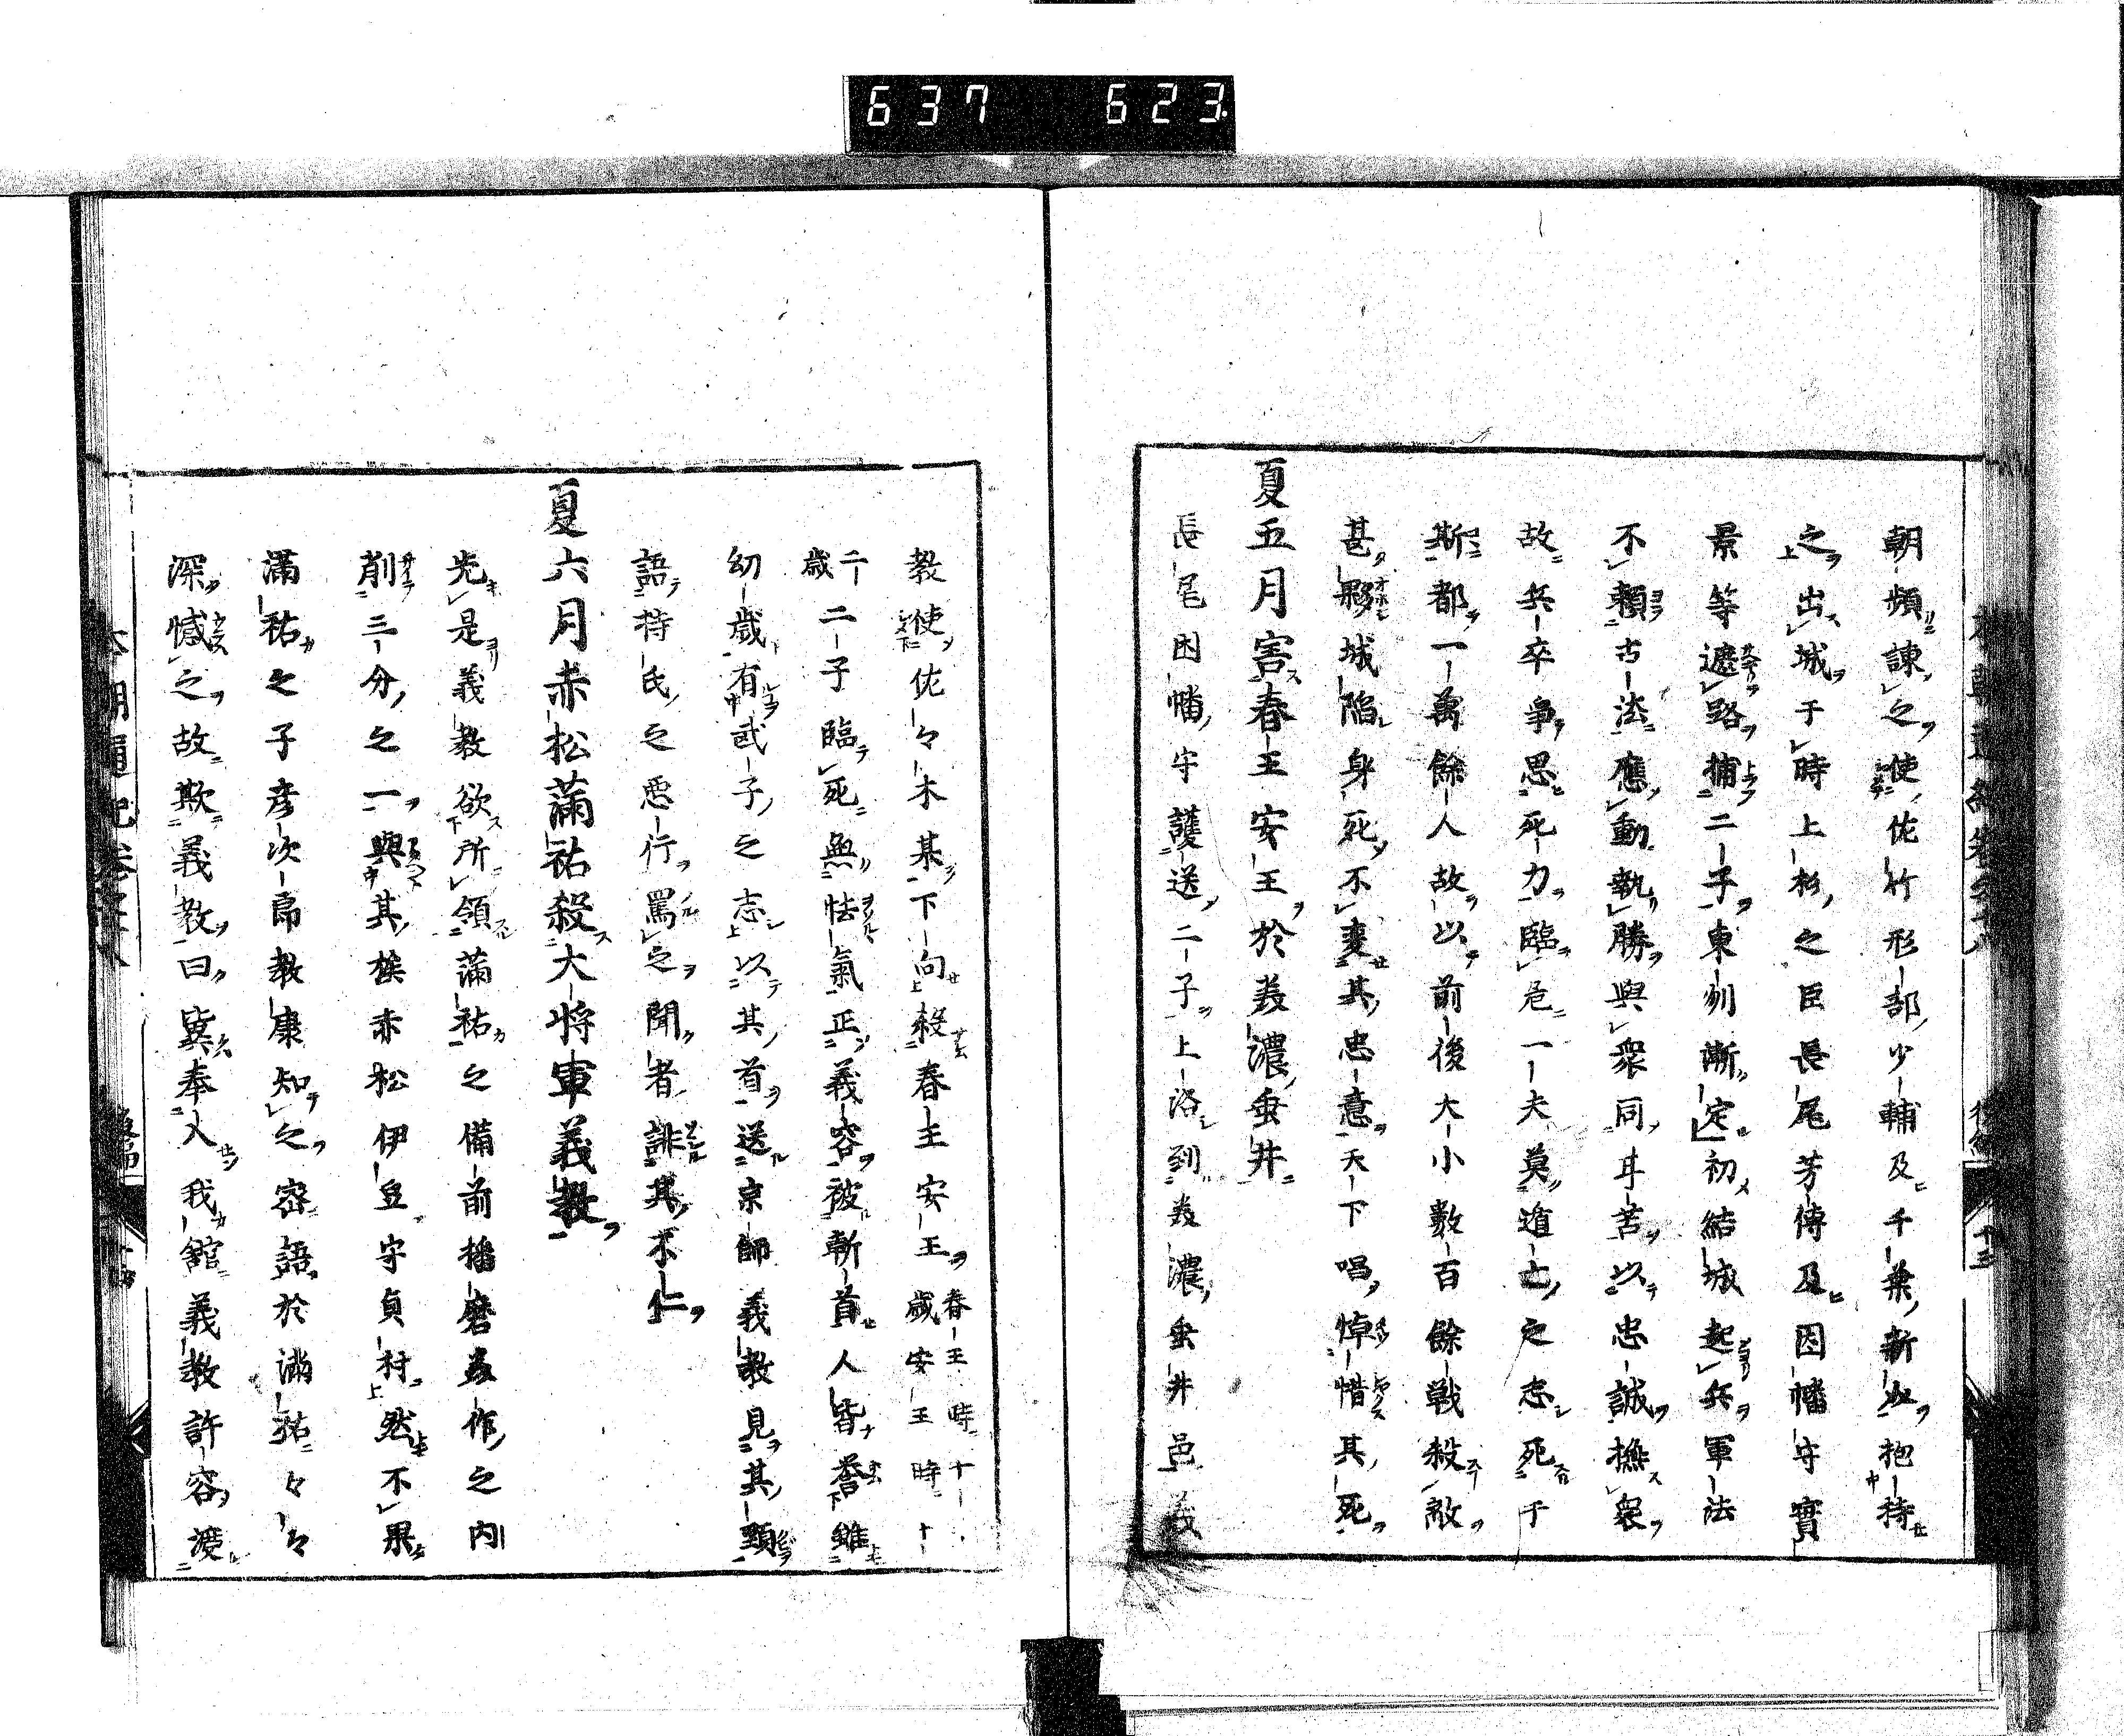 637 623.
朝頻諫之使佐竹形部少輔及千葉新𠫤抱持
之出城于時上杉之臣長尾芳傳及因幡守實
景等遮路捕二子東列漸定初結城起兵軍法
不賴古法應動執勝與衆同甘苦以忠誠撫衆
故兵卒爭思死力臨危一夫莫遁亡之志死于
斯都一萬餘人故以前後大小數百餘戦殺敵
甚夥城陥身死不変其忠意天下唱悼惜其死
夏五月害春王安王於美濃垂井
長尾因幡守護送二子上洛到美濃垂井邑義
教使佐々木某下向殺春王安王春王時十
二歳安王時十
歳二子臨死無怯氣正義容被斬首人皆譽雖
幼歳有武子之志以其首送京師義教見其頸
語持氏之悪行罵之聞者誹其不仁
夏六月赤松滿祐殺大将軍義教
先是義教欲所領滿祐之備前播磨美作之内
削三分之一與其族赤松伊豆守貞村然不果
滿祐之子彦次郎教康知之密語於滿祐々々
深憾之故欺義教曰冀奉入我館義教許容渡